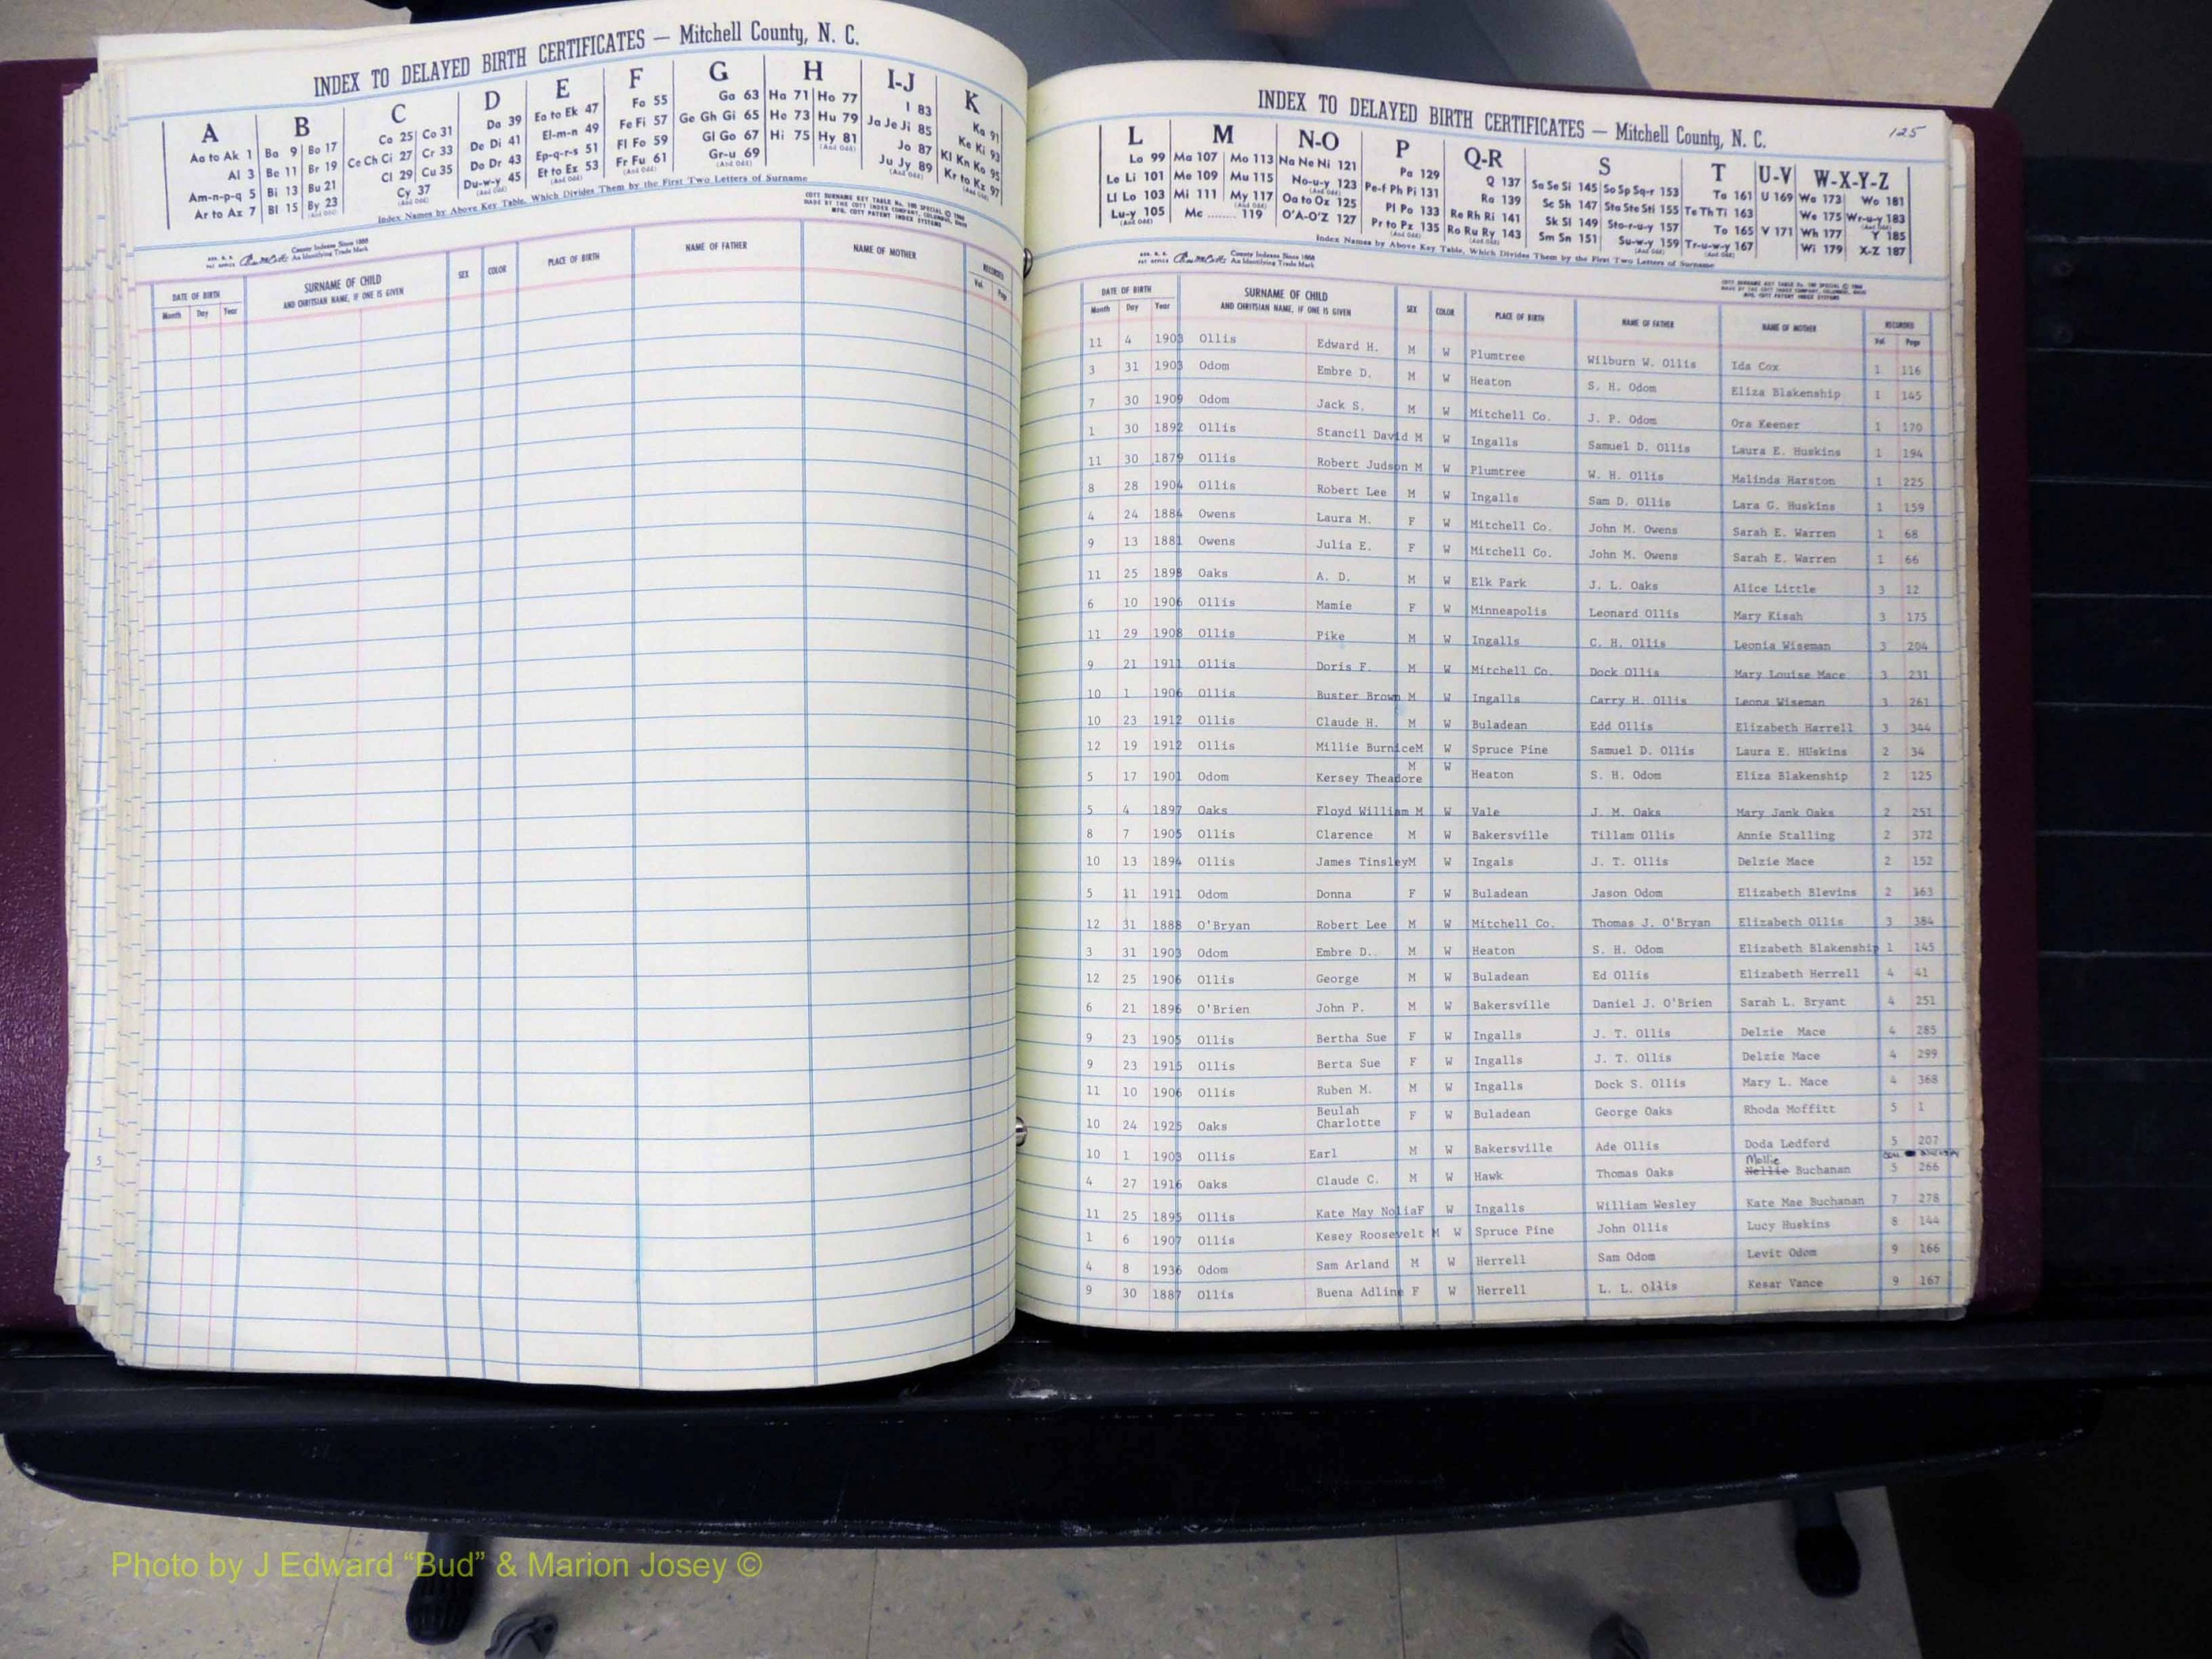 INDEX TO DELAYED BIRTH CERTIFICATES — Mitchell County, N. C.
A B C D E F G H I-J K
Aa to Ak 1 Ba 9 Bo 17 Ca 25 Co 31 Da 39 Ea to Ek 47 Fa 55 Ga 63 Ha 71 Ho 77 I 83 Ka 91
Al 3 Be 11 Br 19 Ce Ch Ci 27 Cr 33 De Di 41 El-m-n 49 Fe Fi 57 Ge Gh Gi 65 He 73 Hu 79 Ja Je Ji 85 Ke Ki 93
Am-n-p-q 5 Bi 13 Bu 21 Cl 29 Cu 35 Do Dr 43 Ep-q-r-s 51 Fl Fo 59 Gl Go 67 Hi 75 Hy 81 (And Odd) Jo 87 Kl Kn Ko 95
Ar to Az 7 Bl 15 By 23 (And Odd) Cy 37 (And Odd) Du-w-y 45 (And Odd) Et to Ez 53 (And Odd) Fr Fu 61 (And Odd) Gr-u 69 (And Odd) Ju Jy 89 (And Odd) Kr to Kz 97 (And Odd)
Index Names by Above Key Table, Which Divides Them by the First Two Letters of Surname
County Indexes Since 1888
An Identifying Trade Mark
DATE OF BIRTH SURNAME OF CHILD SEX COLOR PLACE OF BIRTH NAME OF FATHER NAME OF MOTHER RECORDED
Month Day Year AND CHRITSIAN NAME, IF ONE IS GIVEN Vol. Page
INDEX TO DELAYED BIRTH CERTIFICATES — Mitchell County, N. C. 125
L M N-O P Q-R S T U-V W-X-Y-Z
La 99 Ma 107 Mo 113 Na Ne Ni 121 Pa 129 Q 137 Sa Se Si 145 So Sp Sq-r 153 Ta 161 U 169 Wa 173 Wo 181
Le Li 101 Me 109 Mu 115 No-u-y 123 (And Odd) Pe-f Ph Pi 131 Ra 139 Sc Sh 147 Sta Ste Sti 155 Te Th Ti 163 We 175 Wr-u-y 183 (And Odd)
Ll Lo 103 Mi 111 My 117 (And Odd) Oa to Oz 125 Pl Po 133 Re Rh Ri 141 Sk Sl 149 Sto-r-u-y 157 To 165 V 171 Wh 177 Y 185
Lu-y 105 (And Odd) Mc 119 O'A-O'Z 127 Pr to Pz 135 (And Odd) Ro Ru Ry 143 (And Odd) Sm Sn 151 Su-w-y 159 (And Odd) Tr-u-w-y 167 (And Odd) Wi 179 X-Z 187
Index Names by Above Key Table, Which Divides Them by the First Two Letters of Surname
County Indexes Since 1888
An Identifying Trade Mark
DATE OF BIRTH SURNAME OF CHILD SEX COLOR PLACE OF BIRTH NAME OF FATHER NAME OF MOTHER RECORDED
Month Day Year AND CHRITSIAN NAME, IF ONE IS GIVEN Vol. Page
11 4 1903 Ollis Edward H. M W Plumtree Wilburn W. Ollis Ida Cox 1 116
3 31 1903 Odom Embre D. M W Heaton S. H. Odom Eliza Blakenship 1 145
7 30 1909 Odom Jack S. M W Mitchell Co. J. P. Odom Ora Keener 1 170
1 30 1892 Ollis Stancil David M W Ingalls Samuel D. Ollis Laura E. Huskins 1 194
11 30 1879 Ollis Robert Judson M W Plumtree W. H. Ollis Malinda Harston 1 225
8 28 1904 Ollis Robert Lee M W Ingalls Sam D. Ollis Lara G. Huskins 1 159
4 24 1884 Owens Laura M. F W Mitchell Co. John M. Owens Sarah E. Warren 1 68
9 13 1881 Owens Julia E. F W Mitchell Co. John M. Owens Sarah E. Warren 1 66
11 25 1898 Oaks A. D. M W Elk Park J. L. Oaks Alice Little 3 12
6 10 1906 Ollis Mamie F W Minneapolis Leonard Ollis Mary Kisah 3 175
11 29 1908 Ollis Pike M W Ingalls C. H. Ollis Leonia Wiseman 3 204
9 21 1911 Ollis Doris F. M W Mitchell Co. Dock Ollis Mary Louise Mace 3 231
10 1 1906 Ollis Buster Brown M W Ingalls Carry H. Ollis Leona Wiseman 3 261
10 23 1912 Ollis Claude H. M W Buladean Edd Ollis Elizabeth Harrell 3 344
12 19 1912 Ollis Millie BurniceM W Spruce Pine Samuel D. Ollis Laura E. HUskins 2 34
5 17 1901 Odom Kersey Theadore M W Heaton S. H. Odom Eliza Blakenship 2 125
5 4 1897 Oaks Floyd William M W Vale J. M. Oaks Mary Jank Oaks 2 251
8 7 1905 Ollis Clarence M W Bakersville Tillam Ollis Annie Stalling 2 372
10 13 1894 Ollis James TinsleyM W Ingals J. T. Ollis Delzie Mace 2 152
5 11 1911 Odom Donna F W Buladean Jason Odom Elizabeth Blevins 2 363
12 31 1888 O'Bryan Robert Lee M W Mitchell Co. Thomas J. O'Bryan Elizabeth Ollis 3 384
3 31 1903 Odom Embre D. M W Heaton S. H. Odom Elizabeth Blakenship 1 145
12 25 1906 Ollis George M W Buladean Ed Ollis Elizabeth Herrell 4 41
6 21 1896 O'Brien John P. M W Bakersville Daniel J. O'Brien Sarah L. Bryant 4 251
9 23 1905 Ollis Bertha Sue F W Ingalls J. T. Ollis Delzie Mace 4 285
9 23 1915 Ollis Berta Sue F W Ingalls J. T. Ollis Delzie Mace 4 299
11 10 1906 Ollis Ruben M. M W Ingalls Dock S. Ollis Mary L. Mace 4 368
10 24 1925 Oaks Beulah Charlotte F W Buladean George Oaks Rhoda Moffitt 5 1
10 1 1903 Ollis Earl M W Bakersville Ade Ollis Doda Ledford 5 207
Mollie
4 27 1916 Oaks Claude C. M W Hawk Thomas Oaks Nellie Buchanan 5 266
11 25 1895 Ollis Kate May NoliaF W Ingalls William Wesley Kate Mae Buchanan 7 278
1 6 1907 Ollis Kesey Roosevelt M W Spruce Pine John Ollis Lucy Huskins 8 144
4 8 1936 Odom Sam Arland M W Herrell Sam Odom Levit Odom 9 166
9 30 1887 Ollis Buena Adline F W Herrell L. L. Ollis Kesar Vance 9 167
Photo by J Edward “Bud” & Marion Josey ©